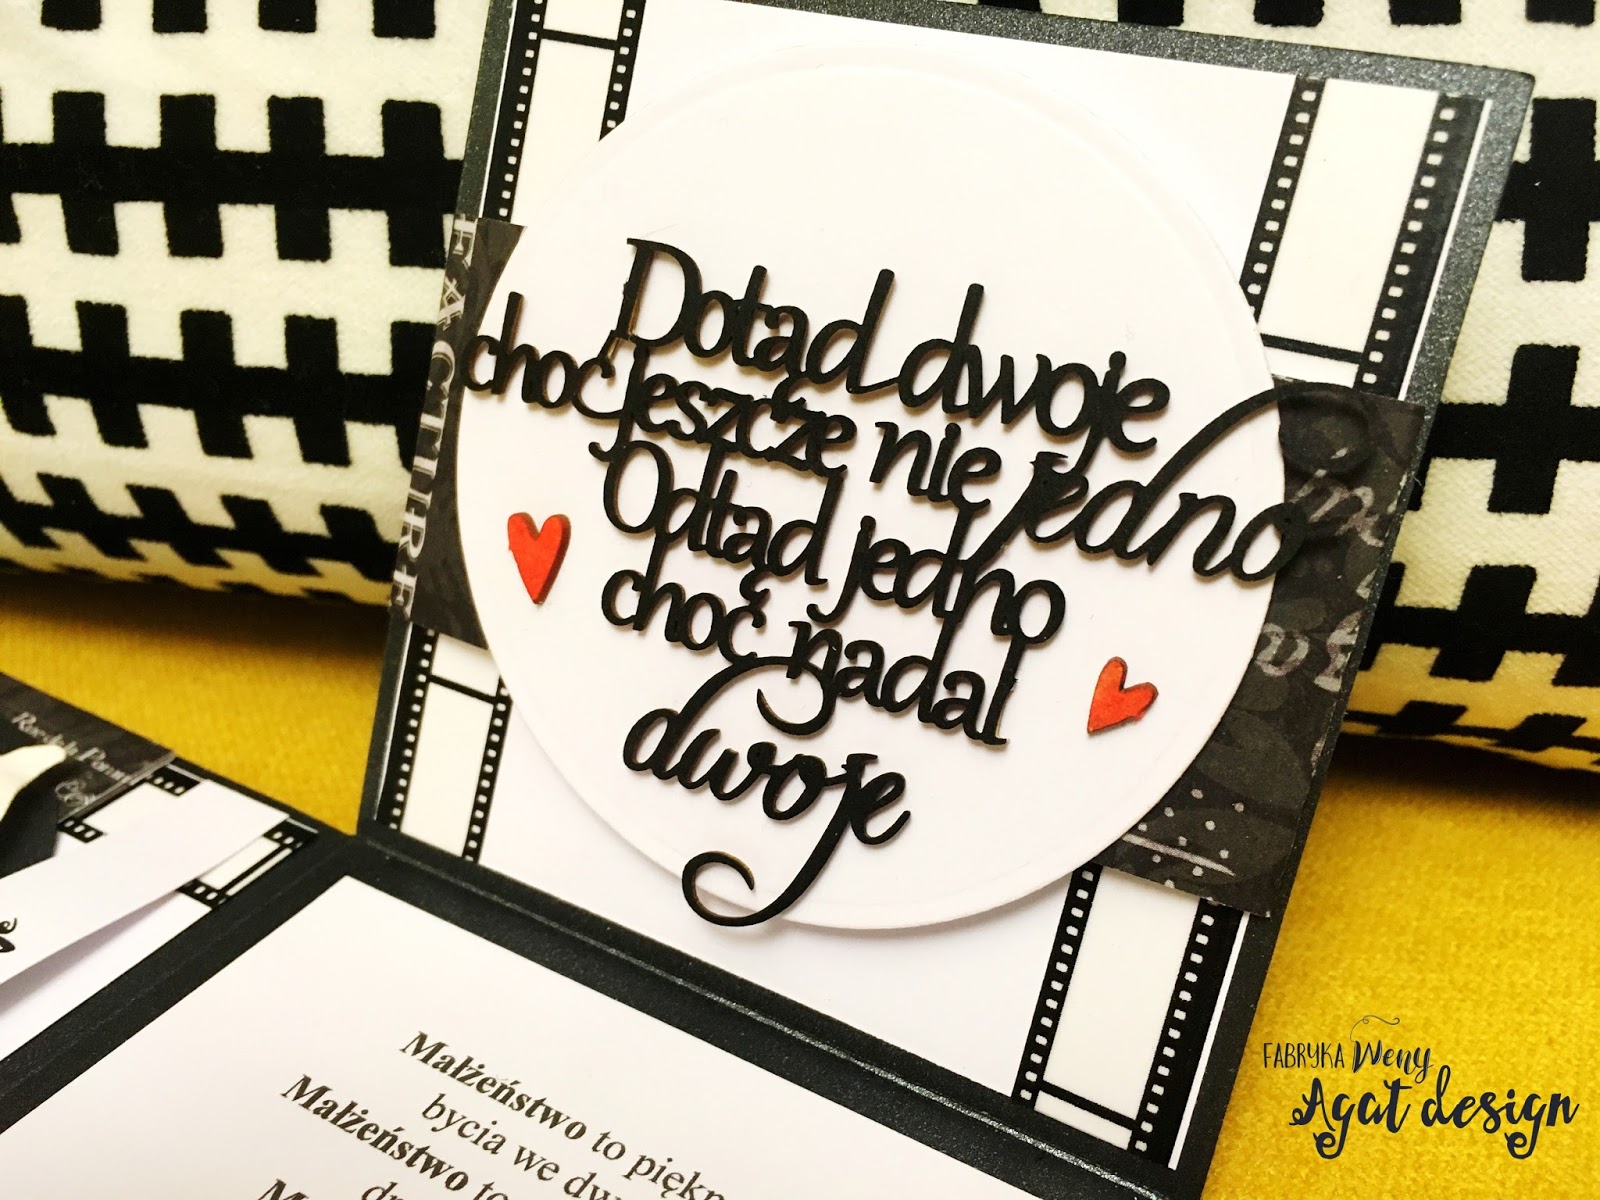 Dotąd dwoje
choć jeszcze nie jedno
Odtąd jedno
choć nadal
dwoje
FEACTURE
Małżeństwo to piękn
bycia we dw
Małżeństwo to
FABRYKA Weny
Agat design